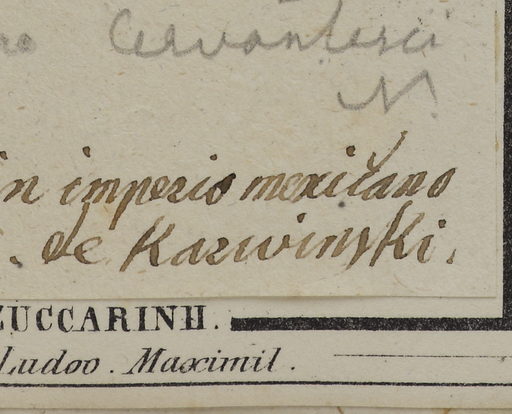 Cervantesii
N.
in imperio mexicano
. de Karwinski.
ZUCCARINII.
Ludov. Maximil.